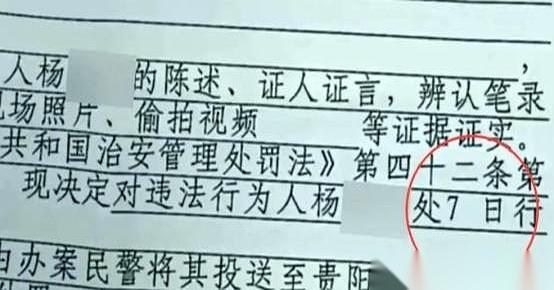 人杨 的陈述、证人证言，辨认笔录
现场照片、偷拍视频 等证据证实。
共和国治安管理处罚法》第四十二条第
现决定对违法行为人杨 处7 日行
由办案民警将其投送至贵阳